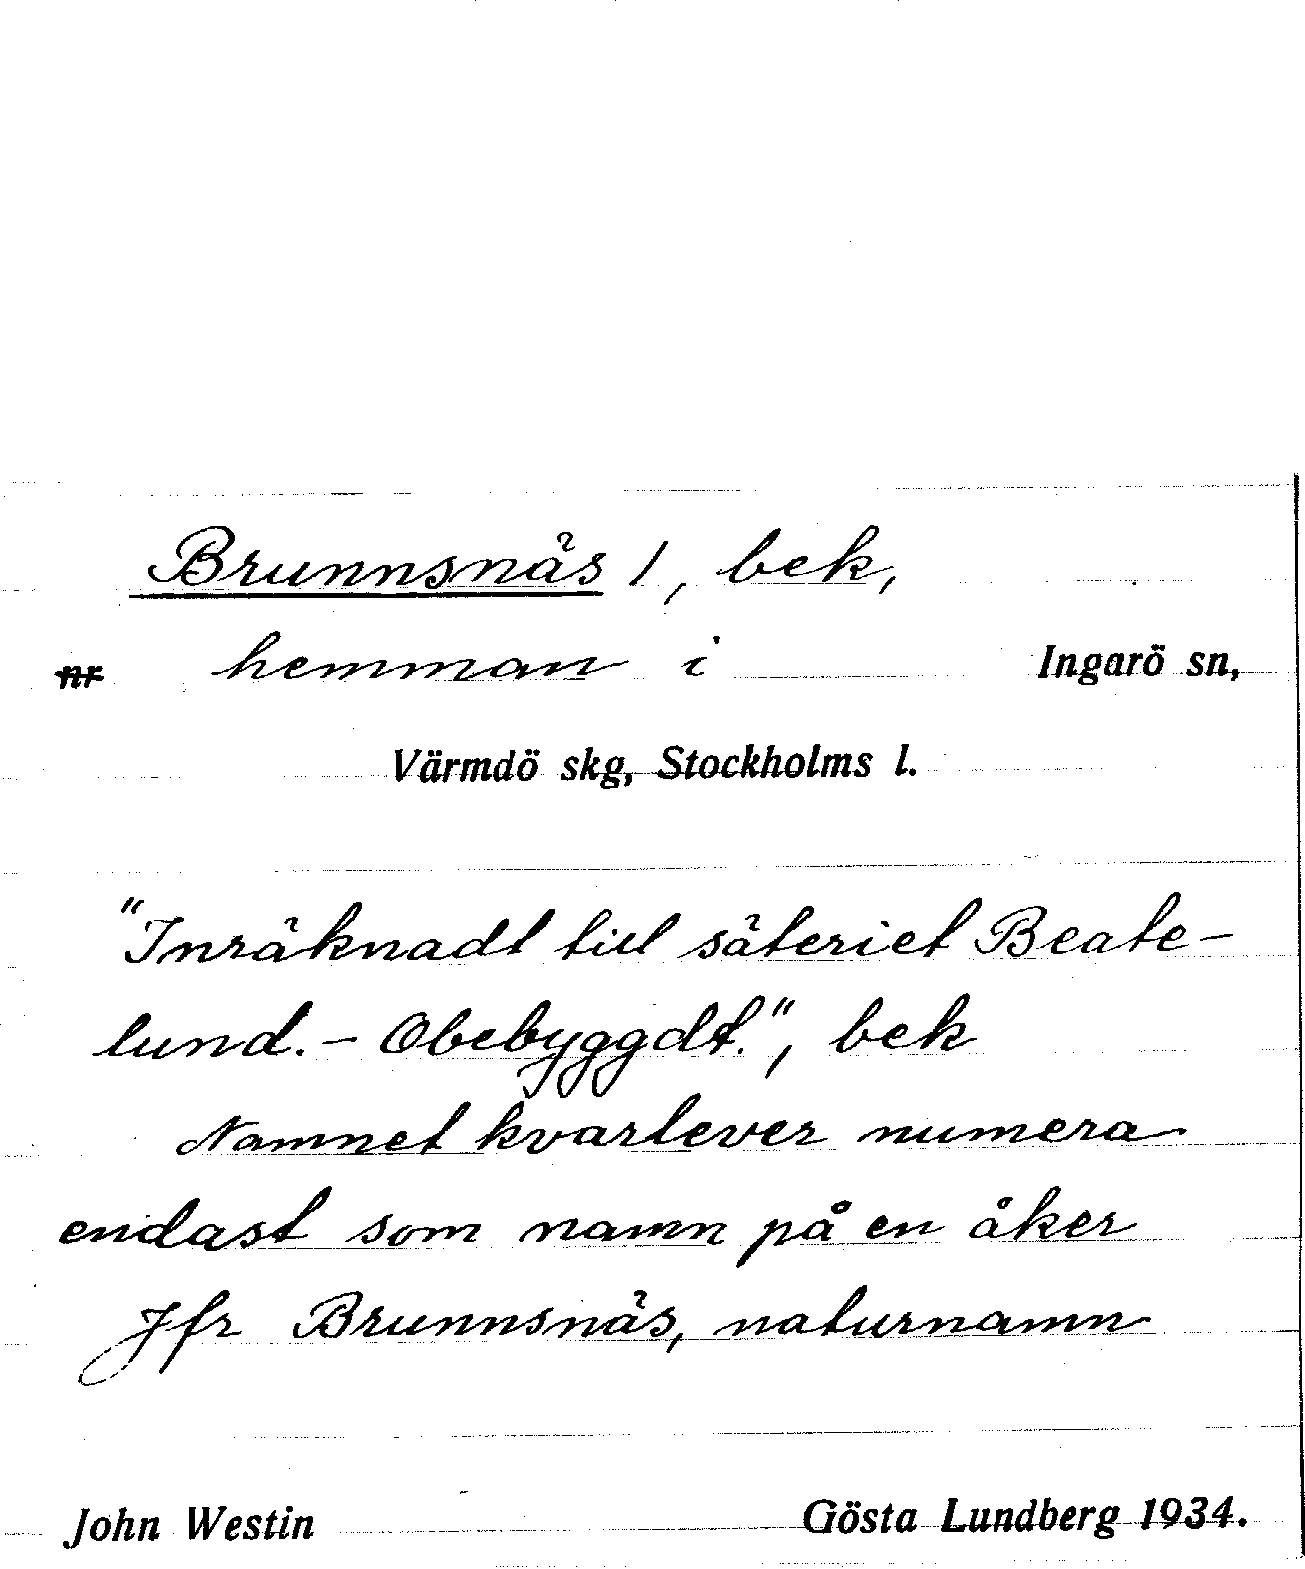 Brunnsnäs 1, bek,
nr hemman i Ingarö sn,
Värmdö skg, Stockholms l.
"Inräknadt till säteriet Beate-
lund. - Obebyggdt.", bek
Namnet kvarlever numera
endast som namn på en åker
Jfr Brunnsnäs, naturnamn
John Westin Gösta Lundberg 1934.